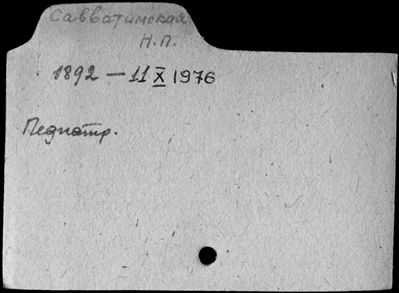 Савватимская
Н.П.
1892 — 11 X 1976
Педиатр.